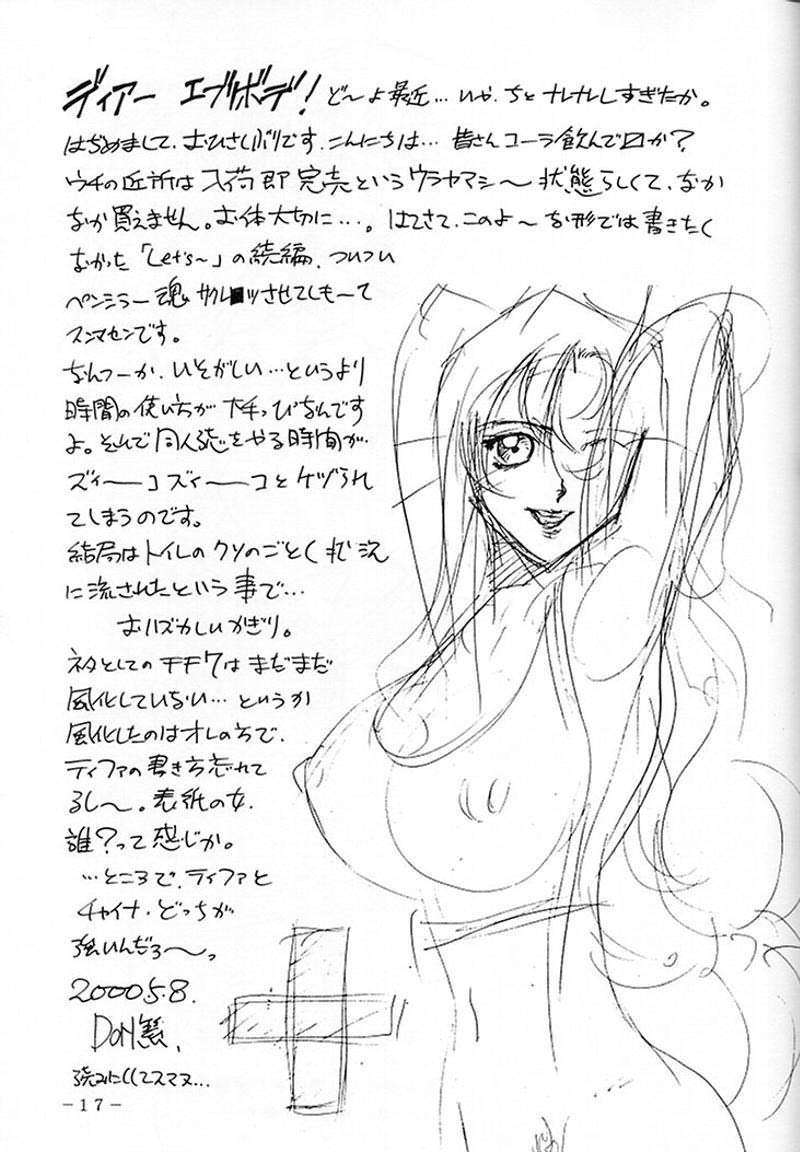 ディアー エブリボデ! ど〜よ最近…いや、ちとナレナレしすぎたか。
はぢめまして、おひさしぶりです、こんにちは… 皆さんコーラ飲んで〼か?
ウチの近所は入荷即完売というウラヤマシ〜状態らしくて、なか
なか買えません。お体大切に…。はてさて、このよ〜な形では書きたく
なかった「Let's〜」の続編、ついつい
ペンシラー魂 サクレ■ツさせてしも〜て
スンマセンです。
なんつーか、いそがしい…というより
時間の使い方が ヘタっぴなんです
よ。そんで同人誌をやる時間が
ズィ〜コズィ〜コとケヅられ
てしまうのです。
結局はトイレのクソのごとく状況
に流されたという事で…
おハズかしいかぎり。
ネタとしてのFF7はまだまだ
風化していない…というか
風化したのはオレの方で、
ティファの書き方忘れて
るし〜。表紙の女、
誰?って感じか。
…ところで、ティファと
チャイナ、どっちが
強いんだろ〜っ
2000.5.8.
DON繁、
読みにくくてスマヌ…
-17-